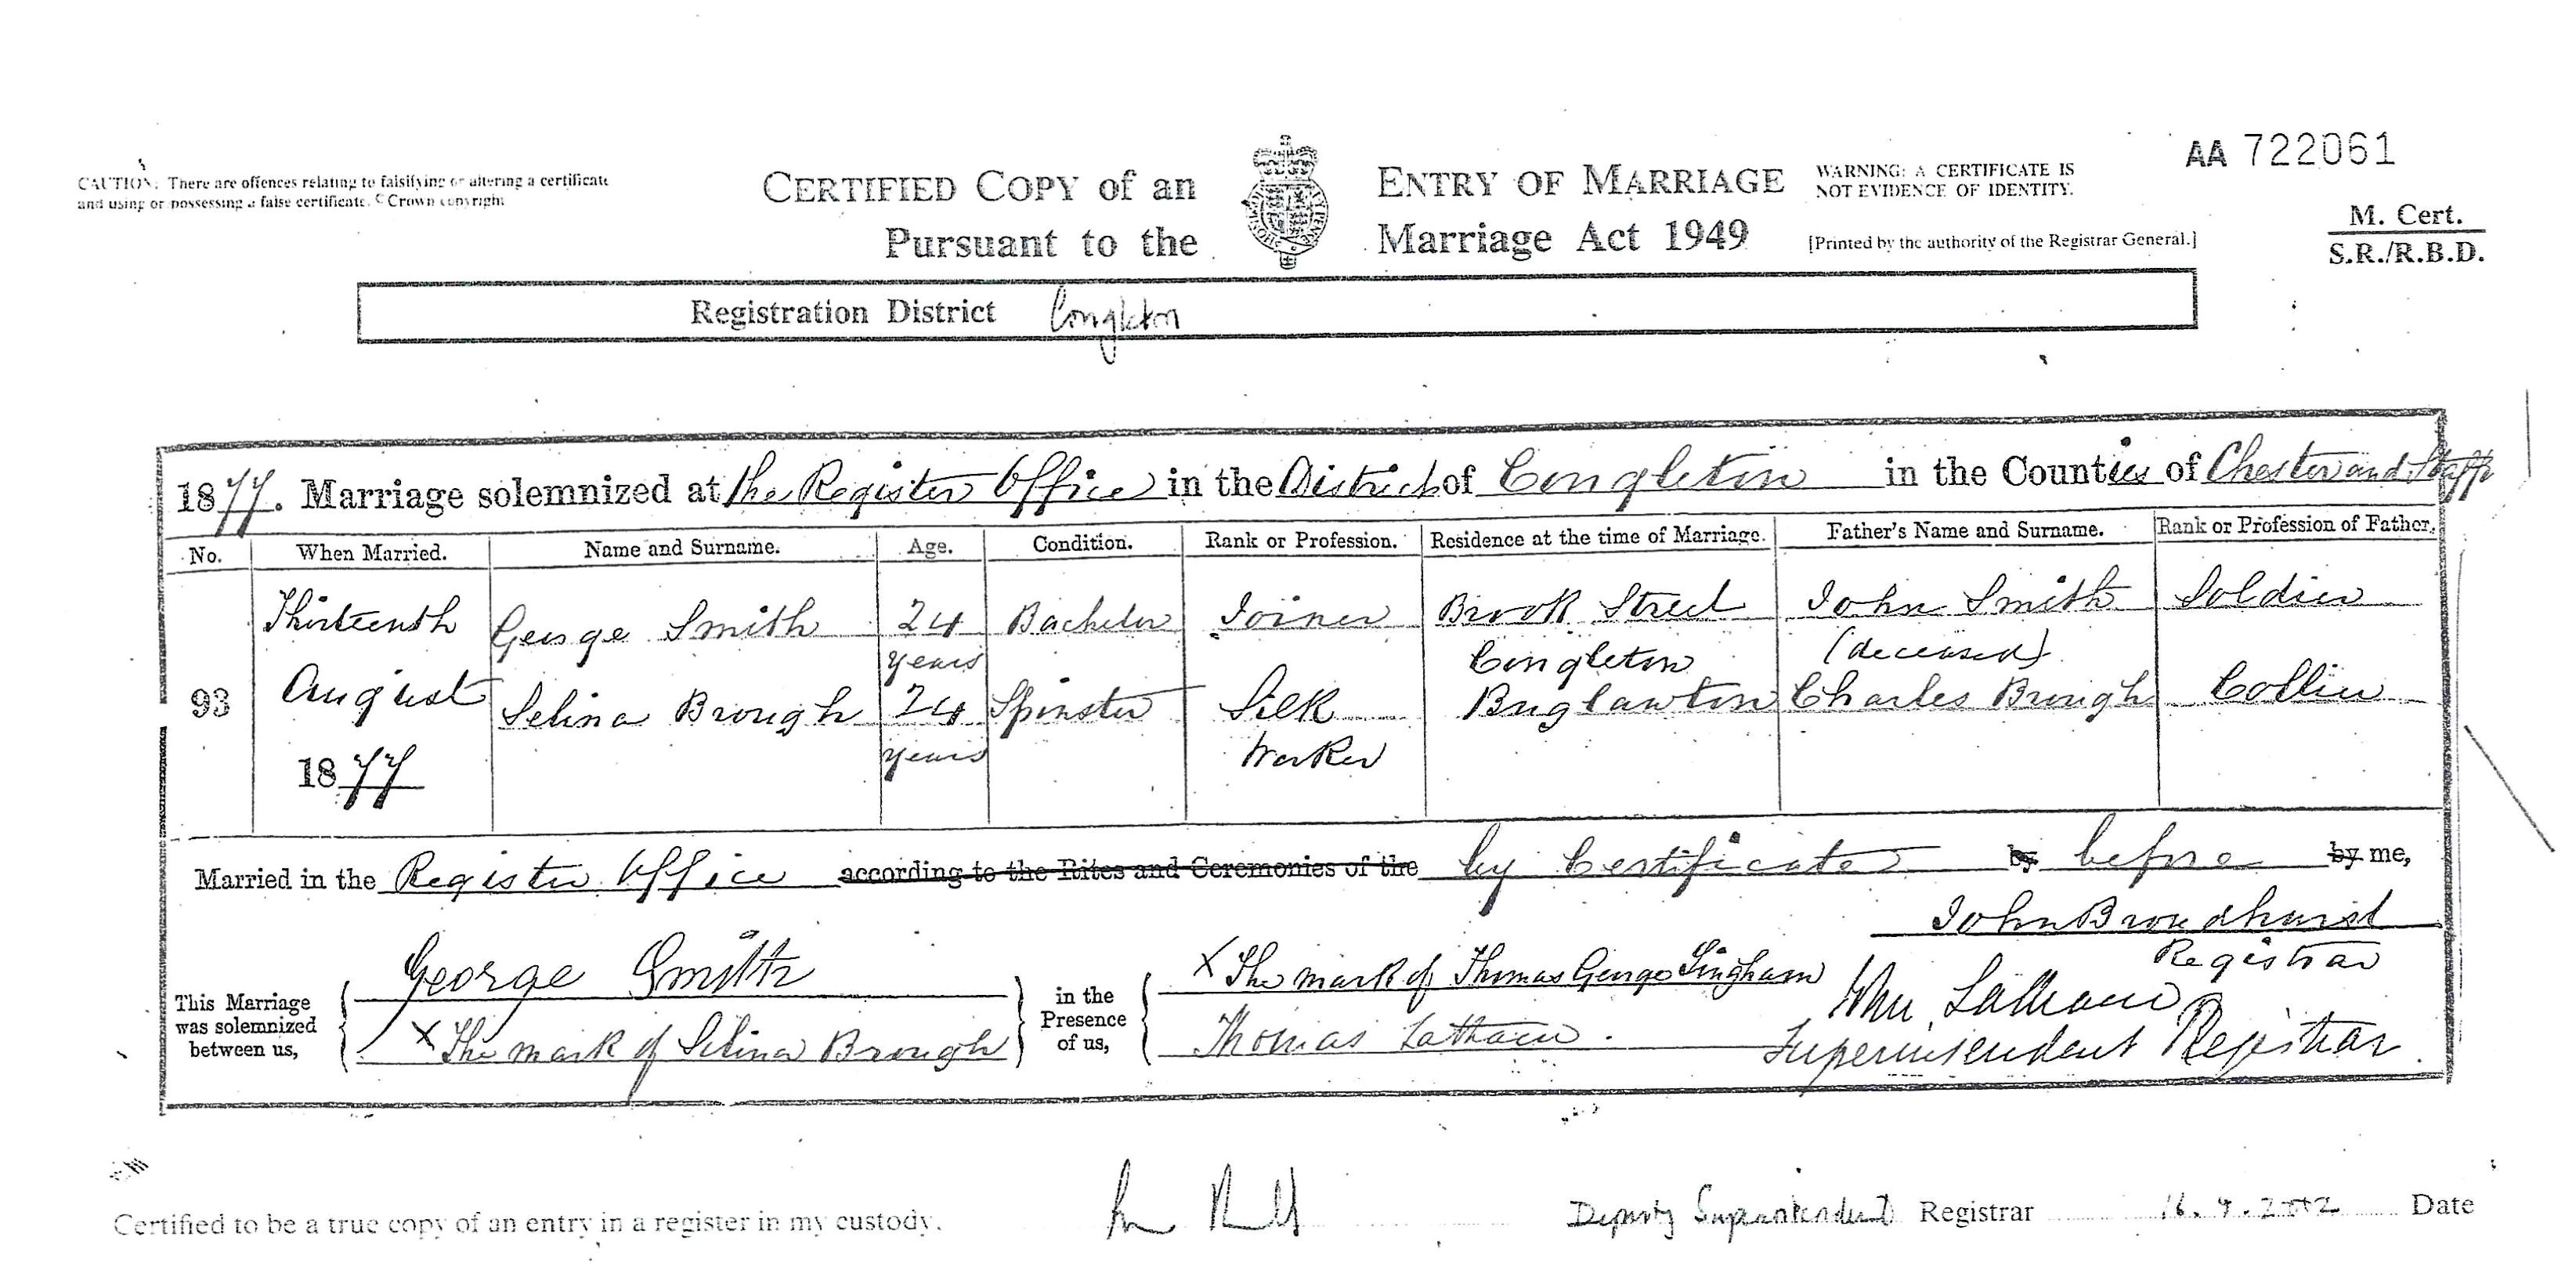 AA 722061
CAUTION: There are offences relating to falsifying or altering a certificate
and using or possessing a false certificate. © Crown copyright
CERTIFIED COPY of an ENTRY OF MARRIAGE
Pursuant to the Marriage Act 1949
WARNING: A CERTIFICATE IS
NOT EVIDENCE OF IDENTITY.
[Printed by the authority of the Registrar General.]
M. Cert.
S.R./R.B.D.
Registration District Congleton
1877. Marriage solemnized at the Register Office in the District of Congleton in the Counties of Chester and Staffs
No. When Married. Name and Surname. Age. Condition. Rank or Profession. Residence at the time of Marriage. Father's Name and Surname. Rank or Profession of Father.
93
Thirteenth
August
1877
George Smith 24 years Bachelor Joiner Brook Street Congleton John Smith (deceased) Soldier
Selina Brough 24 years Spinster Silk Worker Buglawton Charles Brough Collier
Married in the Register Office according to the Rites and Ceremonies of the by Certificate by before by me,
John Broadhurst
Registrar
This Marriage
was solemnized
between us,
George Smith
X The mark of Selina Brough
in the
Presence
of us,
X The mark of Thomas George
Thomas Latham
Wm Latham
Superintendent Registrar
Certified to be a true copy of an entry in a register in my custody.
Deputy Superintendent Registrar 2002 Date